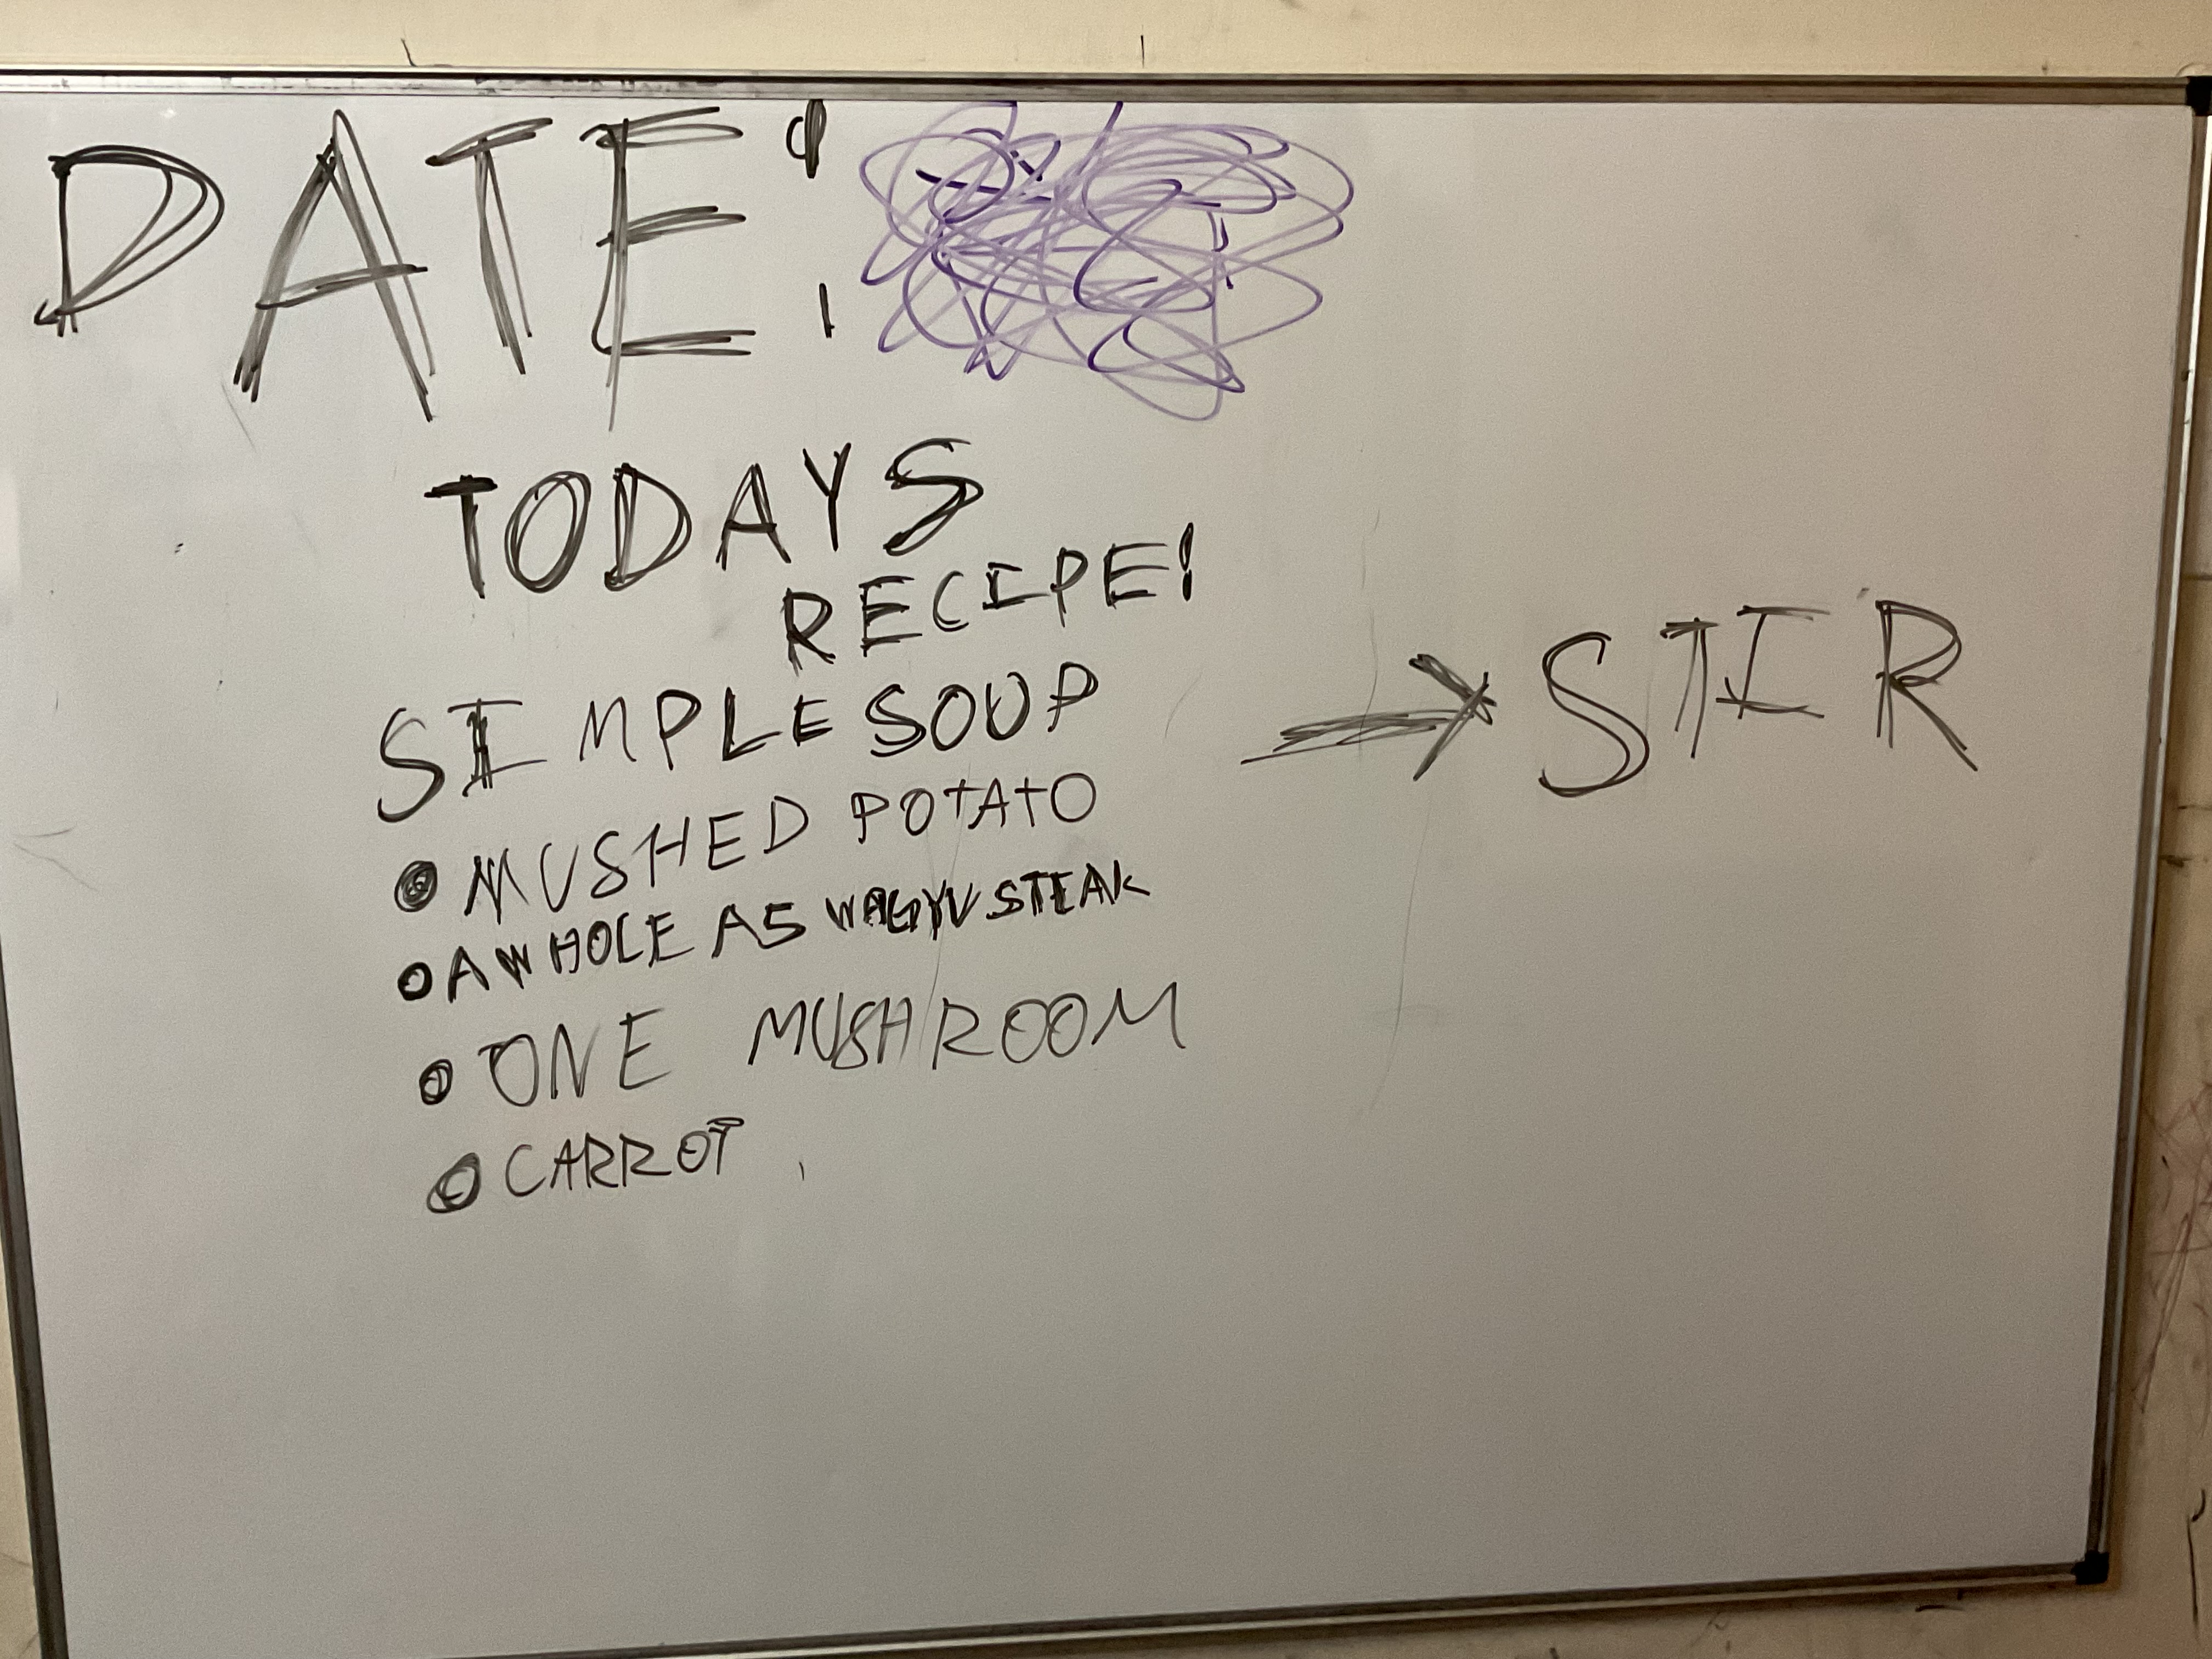 DATE:
TODAYS
RECIPE!
SIMPLE SOUP
→ STIR
• MUSHED POTATO
• A WHOLE A5 WAGYU STEAK
• ONE MUSHROOM
• CARROT